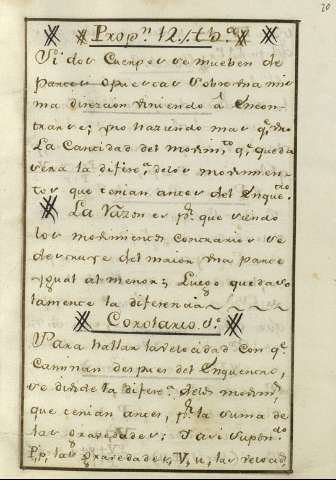 20
Propn. 12. th.a
Si dos Cuerpos se mueben de
partes opuestas sobre una mis
ma direcion viniendo à Encon
trarse; no haziendo mas q.e uno
La Cantidad del movim.to q.e queda
sera la difere.a de los movimien
tos que tenian antes del Enque
ntro
La Razon es p.r que siendo
los movimientos contrarios se
destruye del maior una parte
ygual al menor; Luego queda so
lamente la diferencia
Corolario. 1.o
Para hallar la velocidad con q.e
Caminan despues del Enquentro,
se divide la difere.a de los movim.s
que tenian antes, p.r la suma de
las gravedades; Y asi supon.do
P, p, las gravedades, V, u, las velocid.